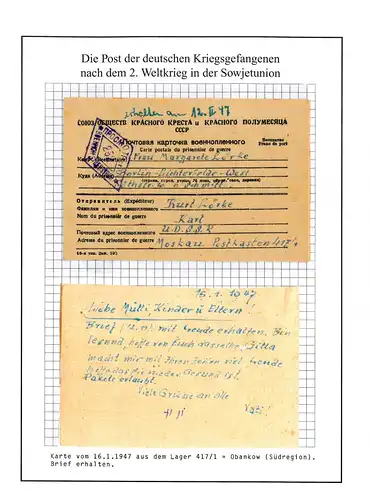 Die Post der deutschen Kriegsgefangenen
nach dem 2. Weltkrieg in der Sowjetunion
erhalten am 12.II.47
СОЮЗ ОБЩЕСТВ КРАСНОГО КРЕСТА и КРАСНОГО ПОЛУМЕСЯЦА
СССР
Почтовая карточка военнопленного
Carte postale du prisonnier de guerre
Бесплатно
Franc de port
Frau Margarete Lörke
Куда
Berlin-Lichterfelde-West
Отправитель (Expéditeur)
Фамилия и имя военнопленного
Nom du prisonnier de guerre
Kurt Lörke
Karl
Почтовый адрес военнопленного
Adresse du prisonnier de guerre
U.D.S.S.R.
Moskau Postkasten 417/1
16.1.1947
Liebe Mutti, Kinder u Eltern!
Brief mit Freude erhalten. Bin
gesund, hoffe von Euch dasselbe.
macht mir mit Ihren Zeilen viel Freude
Gesund ist.
Pakete erlaubt.
Viele Grüsse an alle
Vati!
Karte vom 16.1.1947 aus dem Lager 417/1 = Obankow (Südregion).
Brief erhalten.